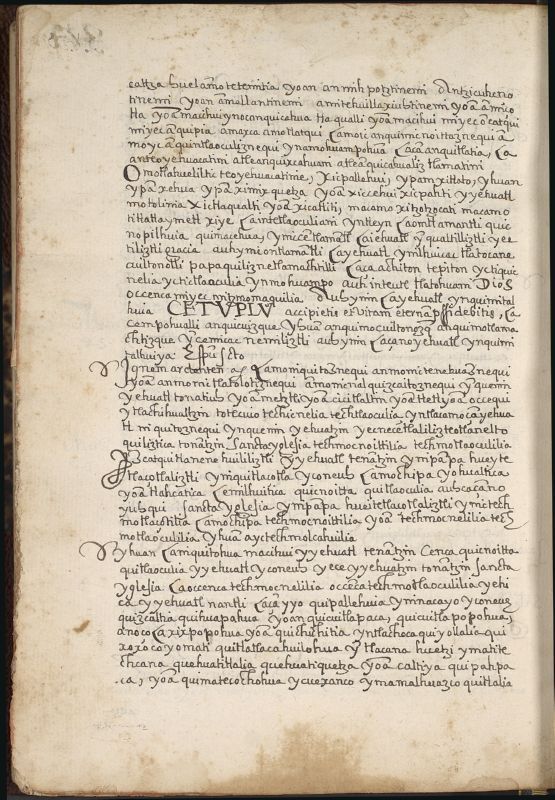 caltza huel amotetemitia yoan anmih potztinemi Antzicuhcuio
tinemi yoan amallantinemi amitehuillaxiuhtinemi yoā āmico
tla yoā macihui ynoc anquicahua tla qualli yoā macihui miyec ōcatqui
miyec āquipia amaxca amotlatqui Camo ic anquimicnoittaznequi ā
moyc āquintlaoculiznequi ynamohuampohua Cacā anquitlatia, Ca
anteoyehuacatini atle anquixcahuani atle āquicahualiztlamatini
Omotlahueliltic teoyehuacatinie, xicpallehui, ypan xitlato, yhuan
ypā xehua ypā ximixquetza yoā xiccehui xicpahti yyehuatl
motolinia xictlaqualti yoā xicatliti, macamo xitzotzocati macamo
titlatlaymetl xiye Ca intetlaoculiani ynteyn Caomtlamantli quic
nopilhuia quimacehua, ymicētlamatl Ca yehuatl yn qualtiliztli yec
tiliztli gracia auh ymiontlamatli Ca yehuatl ymilhuicac tlatocane
cuiltonolli papaquiliznetlamachtilli Caca achiton tepiton yctiquic
nelia yctictlaoculia ynmohuampo auh inteutl tlatohuani Dios
occenca miyec mitzmomaquilia Auh ynin Ca yehuatl ynquimital
huia CETVPLV accipietis et vitam eternā possidebitis, Ca
cempohualli anquicuizque yhuā anquimocuiltonozq anquimotlama
chtizque yn cemicac nemiliztli auh ynin Cacāno yehuatl ynquimi
talhuiya Espū scto
Ignem ardentem a& Camo niquitoznequi anmomitenehuaznequi
yoā anmo nitlatoloti​znequi amo moral quizcaitoznequi yn quenin
yehuatl tonatiuh yoā metztli yoā cicitlaltin yoā tletl yoā occequi
ytlachihualtzin totecuio techicnelia techtlaoculia yntlacamo ca yehua
tl miquitoznequi ynquenin yehuatzin yecnecētlaliliztteotlanelto
quiliztica tonātzin Sancta yglesia techmocnoittilia techmotlaoculilia
Izcatqui tlanenehuililiztli yn yehuatl tenātzin ympāpa hueyte
tlaçotlaliztli yn iquitlacotla yconeuh Camochipa yohualtica
yoā tlahcatica Cemilhuitica quicnoitta quitlaoculia auh ça çano
yuhqui Sancta yglesia ympāpa huei tetlaçotlaliztli ynictech
motlaçotilia Camochipa techmocnoittilia yoā techmocnelilia tech
motlaoculilia yhuā ayc techmolcahuilia
Yhuan Camiquitohua macihui yyehuatl tenātzin Cenca quicnoitta
quitlaoculia yyehuatl yconeuh yece yyehuatzin tonātzin Sancta
yglesia Caoccenca techmocnelilia occēca techmotlaoculilia yehi
ca yyehuatl nantli Cacā yyo quipallehuia ynin acayo yconeuh
quizcaltia quihuapahua yoan quicuitlapaca, quicuitlapopohua,
anoço caxixpopohua yoā quichichitia yntlachoca quiyollalia qui
xoxocoyomati quitlatlacahuilohua yn tlacana huetzi ymatite
chcana quehuatitlalia quehuatiquetza yoā caltiya quipahpa
ca, yoā quimatecochohua ycuexanco ymamalhuazco quitlalia